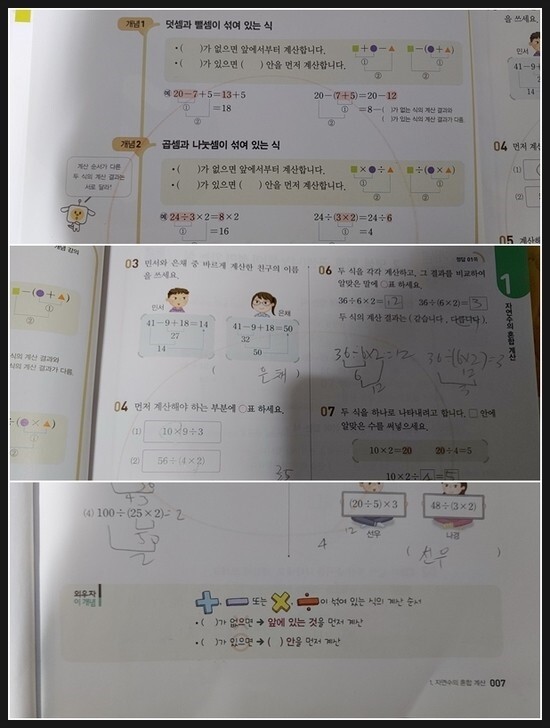 개념1 덧셈과 뺄셈이 섞여 있는 식
• ( )가 없으면 앞에서부터 계산합니다.
• ( )가 있으면 ( ) 안을 먼저 계산합니다.
■+●-▲
①
②
■-(●+▲)
①
②
예 20-7+5=13+5
=18
①
②
20-(7+5)=20-12
=8
①
②
( )가 없는 식의 계산 결과와
( )가 있는 식의 계산 결과가 다름.
개념2 곱셈과 나눗셈이 섞여 있는 식
계산 순서가 다른
두 식의 계산 결과는
서로 달라!
• ( )가 없으면 앞에서부터 계산합니다.
• ( )가 있으면 ( ) 안을 먼저 계산합니다.
■×●÷▲
①
②
■÷(●×▲)
①
②
예 24÷3×2=8×2
=16
①
②
24÷(3×2)=24÷6
=4
①
②
을 쓰세요.
민서
41-9+
14
04 먼저 계
(1)
(2)
05 계산해
개념 강의
■-(●+▲)
식의 계산 결과와
식의 계산 결과가 다름.
÷(●×▲)
03 민서와 은채 중 바르게 계산한 친구의 이름
을 쓰세요.
민서
은채
41-9+18=14
27
14
41-9+18=50
32
50
( 은채
04 먼저 계산해야 하는 부분에 ○표 하세요.
(1) 10×9÷3
(2) 56÷(4×2)
35
정답 01쪽
06 두 식을 각각 계산하고, 그 결과를 비교하여
알맞은 말에 ○표 하세요.
36÷6×2=12 36÷(6×2)=3
두 식의 계산 결과는 (같습니다, 다릅니다).
36÷6×2=12
6
12
36÷(6×2)=3
12
3
07 두 식을 하나로 나타내려고 합니다. □ 안에
알맞은 수를 써넣으세요.
10×2=20 20÷4=5
10×2÷4=5
1
자연수의 혼합 계산
43
(4) 100÷(25×2)=2
50
2
(20÷5)×3
선우
12
48÷(3×2)
나경
4
( 선우 )
외우자
이 개념
+, - 또는 ×, ÷이 섞여 있는 식의 계산 순서
• ( )가 없으면 → 앞에 있는 것을 먼저 계산
• ( )가 있으면 → ( ) 안을 먼저 계산
1. 자연수의 혼합 계산 007